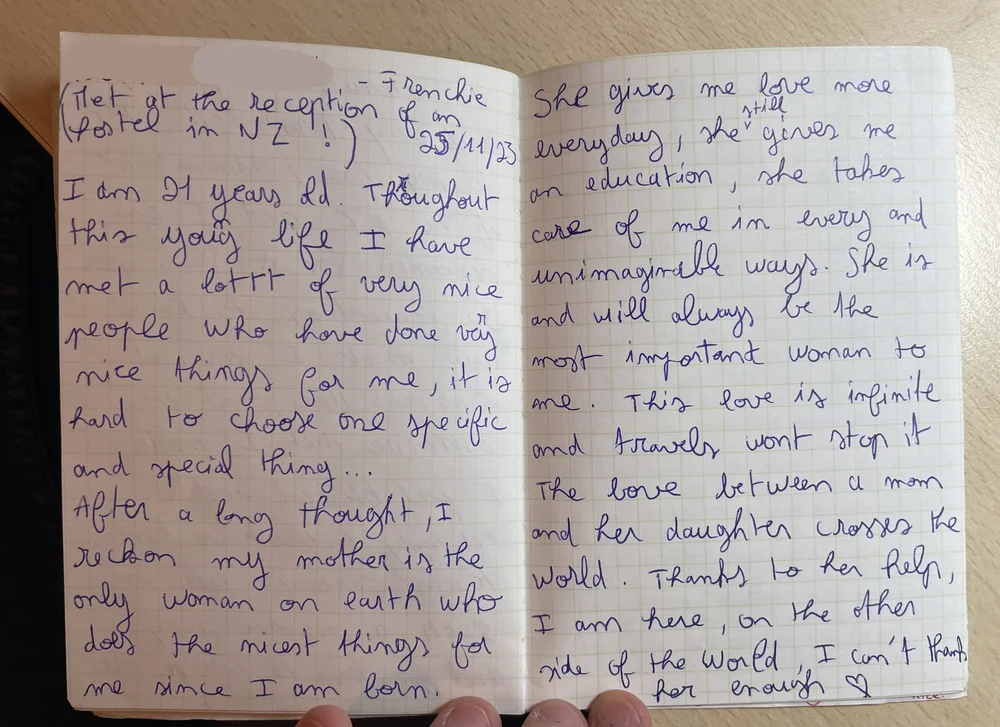 - Frenchie
(Met at the reception of an
hostel in NZ !)
25/11/23
I am 21 years old. Throughout
this young life I have
met a lottt of very nice
people who have done very
nice things for me, it is
hard to choose one specific
and special thing...
After a long thought, I
reckon my mother is the
only woman on earth who
does the nicest things for
me since I am born.
She gives me love more
everyday, she still gives me
an education, she takes
care of me in every and
unimaginable ways. She is
and will always be the
most important woman to
me. This love is infinite
and travels wont stop it
The love between a mom
and her daughter crosses the
world. Thanks to her help,
I am here, on the other
side of the world, I can't thank
her enough ♡